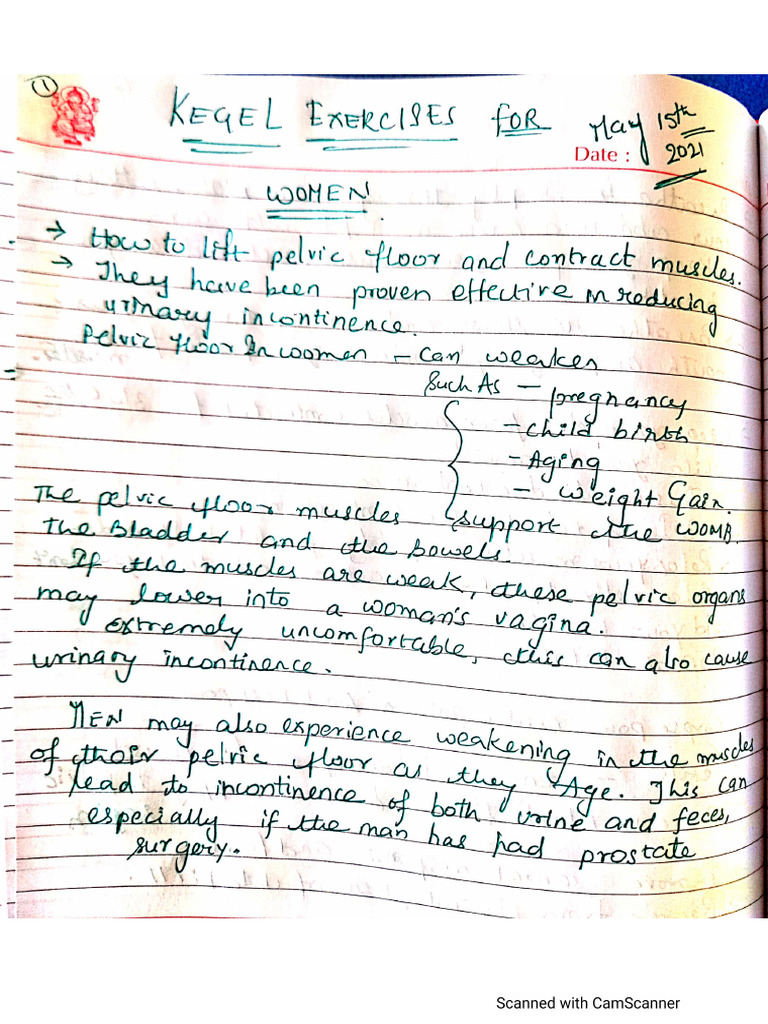 1
KEGEL EXERCISES for
May 15th
Date :
2021
WOMEN
→ How to lift pelvic floor and contract muscles.
→ They have been proven effective in reducing
urinary incontinence.
Pelvic floor In women - can weaken
Such As - pregnancy
- child birth
- Aging
- weight Gain.
The pelvic floor muscles support the WOMB.
the Bladder and the bowels.
If the muscles are weak, these pelvic organs
may lower into a woman's vagina.
extremely uncomfortable, this can also cause
urinary incontinence.
MEN may also experience weakening in the muscles
of their pelvic floor as they Age. This can
lead to incontinence of both urine and feces,
especially if the man has had prostate
surgery.
Scanned with CamScanner